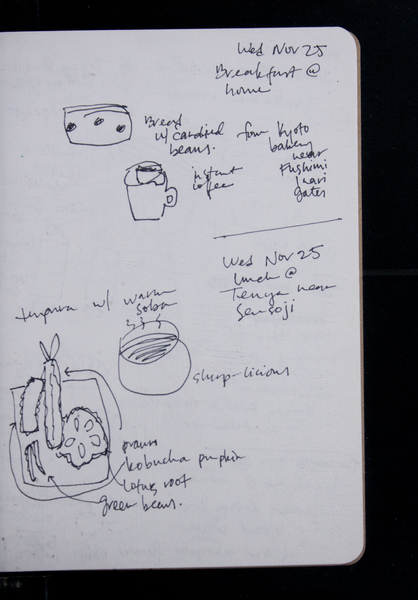 Wed Nov 25
Breakfast @
home
Bread
w/ candied
beans.
from Kyoto
bakery
near
Fushimi
Inari
gates
instant
coffee
Wed Nov 25
lunch @
Tenya near
Sensoji
tempura w/ warm
soba
slurp-licious
prawn
kobucha pumpkin
lotus root
green beans.